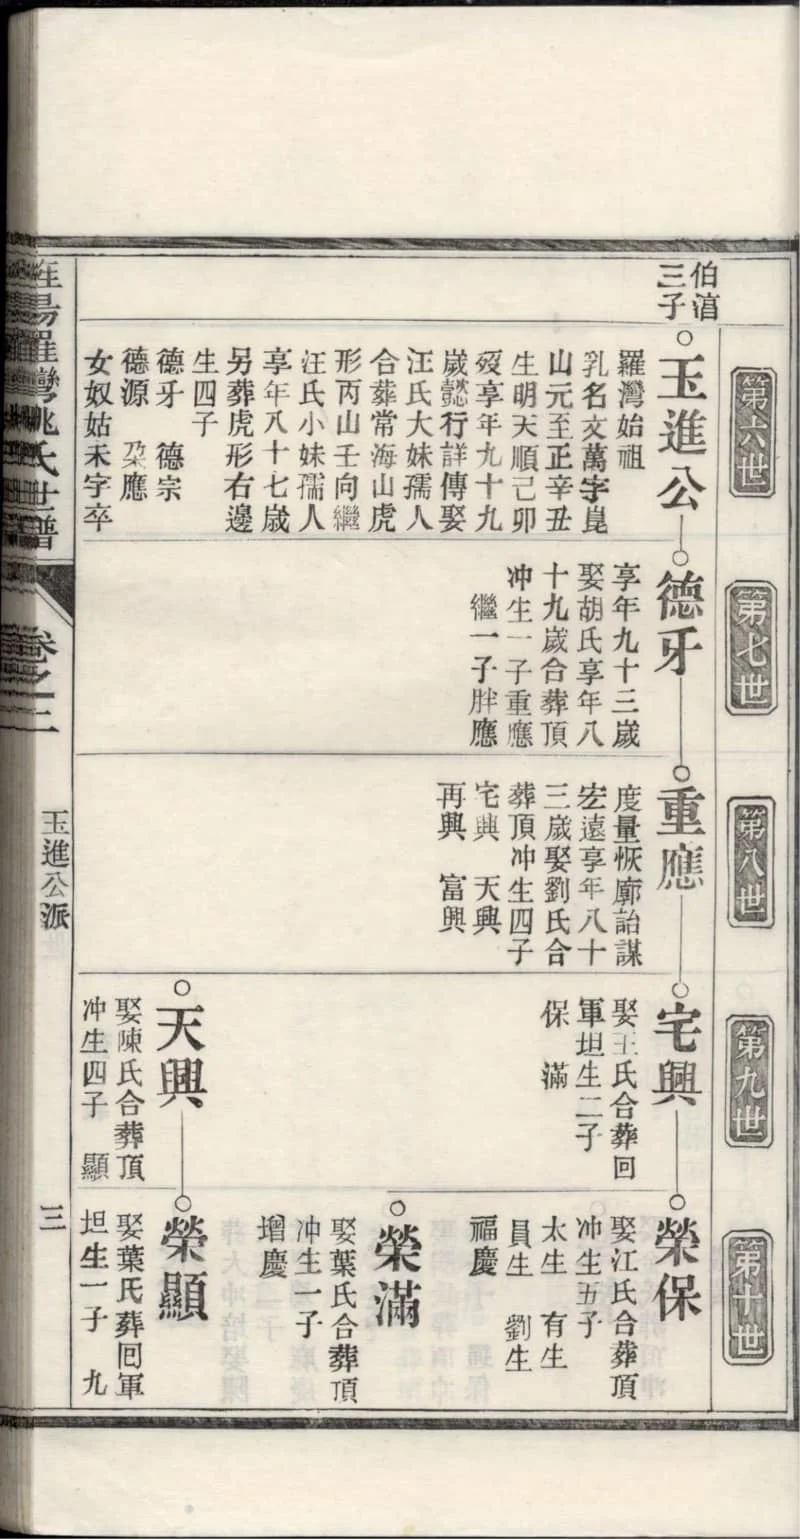 第六世
伯湻
三子
玉進公
羅灣始祖
乳名文萬字崑
山元至正辛丑
生明天順己卯
歿享年九十九
歲懿行詳傳娶
汪氏大妹孺人
合葬常海山虎
形丙山壬向繼
汪氏小妹孺人
享年八十七歲
另葬虎形右邊
生四子
德牙 德宗
德源 朶應
女奴姑未字卒
第七世
德牙
享年九十三歲
娶胡氏享年八
十九歲合葬頂
冲生一子重應
繼一子胖應
第八世
重應
度量恢廓詒謀
宏遠享年八十
三歲娶劉氏合
葬頂冲生四子
宅興 天興
再興 富興
第九世
宅興
娶王氏合葬回
軍坦生二子
保 滿
天興
娶陳氏合葬頂
冲生四子 顯
第十世
榮保
娶江氏合葬頂
冲生五子
太生 有生
員生 劉生
福慶
榮滿
娶葉氏合葬頂
冲生一子
增慶
榮顯
娶葉氏葬囘軍
坦生一子 九
羅灣姚氏世譜
卷之三
玉進公派
三